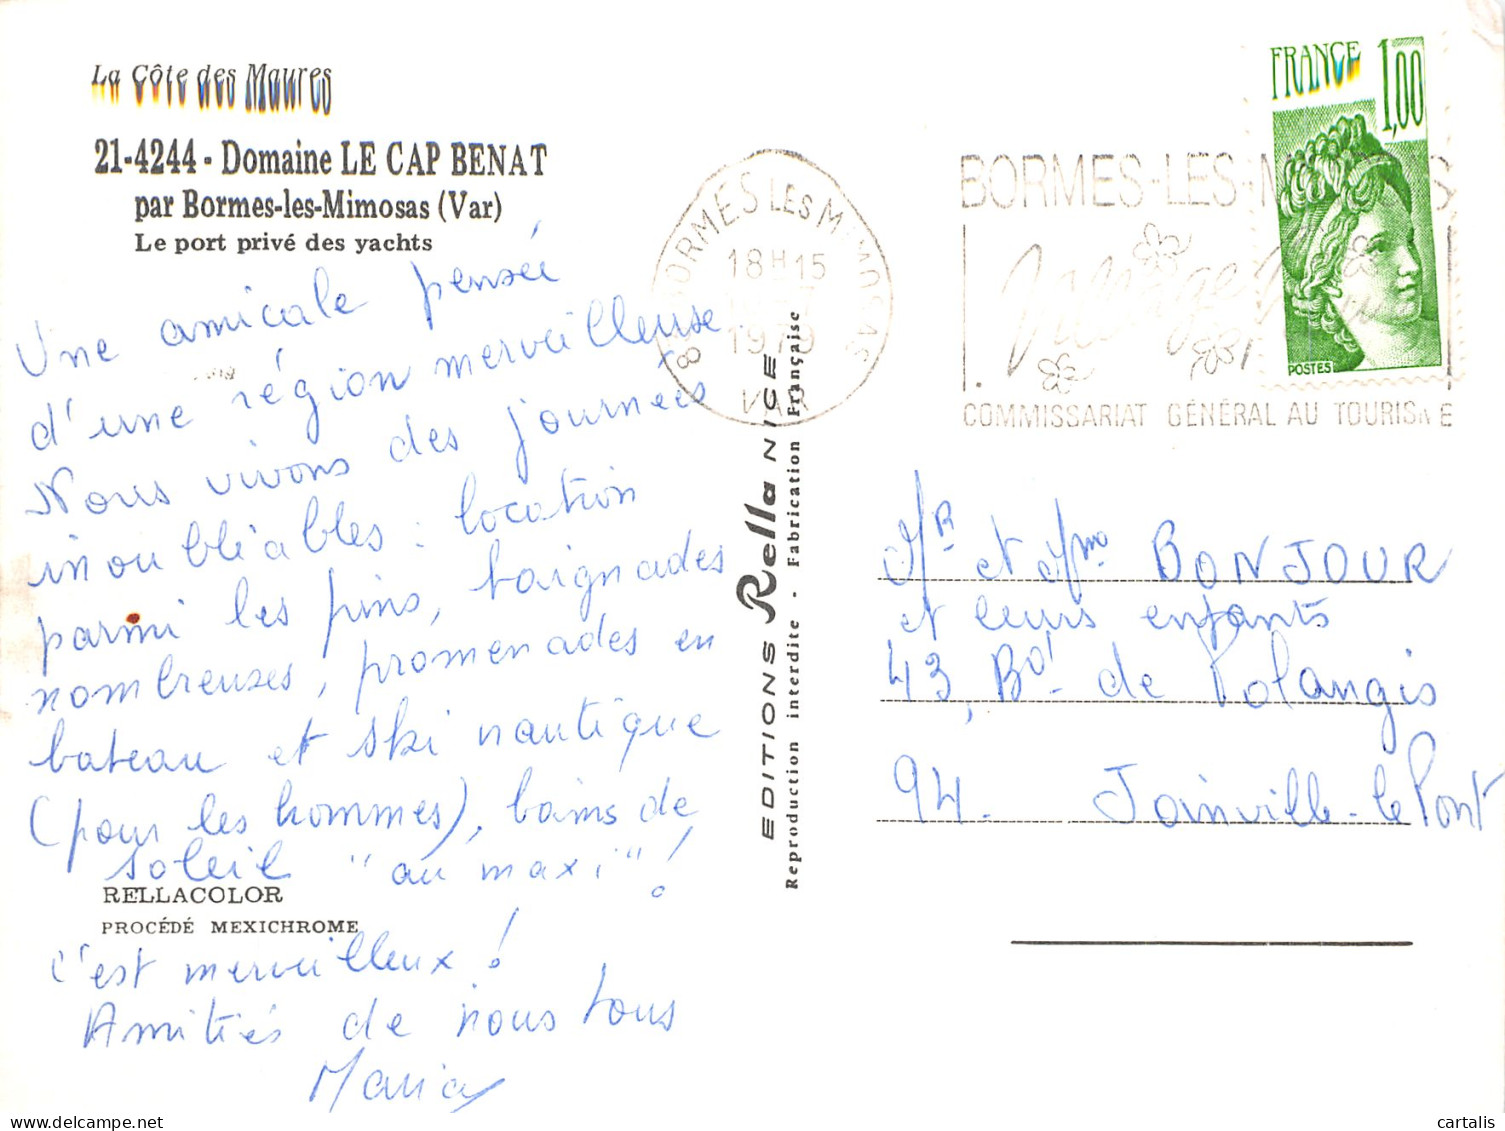 La Côte des Maures
21-4244 - Domaine LE CAP BENAT
par Bormes-les-Mimosas (Var)
Le port privé des yachts
Une amicale pensée
d'une région merveilleuse
Nous vivons des journées
inoubliables : location
parmi les pins, baignades
nombreuses, promenades en
bateau et ski nautique
(pour les hommes), bains de
soleil "au maxi"!
RELLACOLOR
PROCÉDÉ MEXICHROME
C'est merveilleux !
Amitiés de nous tous
Maria
EDITIONS Rella NICE
Reproduction interdite - Fabrication Française
BORMES LES MIMOSAS
18H15
1979
VAR
BORMES-LES-MIMOSAS
COMMISSARIAT GÉNÉRAL AU TOURISME
FRANCE 1,00
POSTES
Mr et Mme BONJOUR
et leurs enfants
43, Bd de Polangis
94. Joinville-le Pont
cartalis
delcampe.net